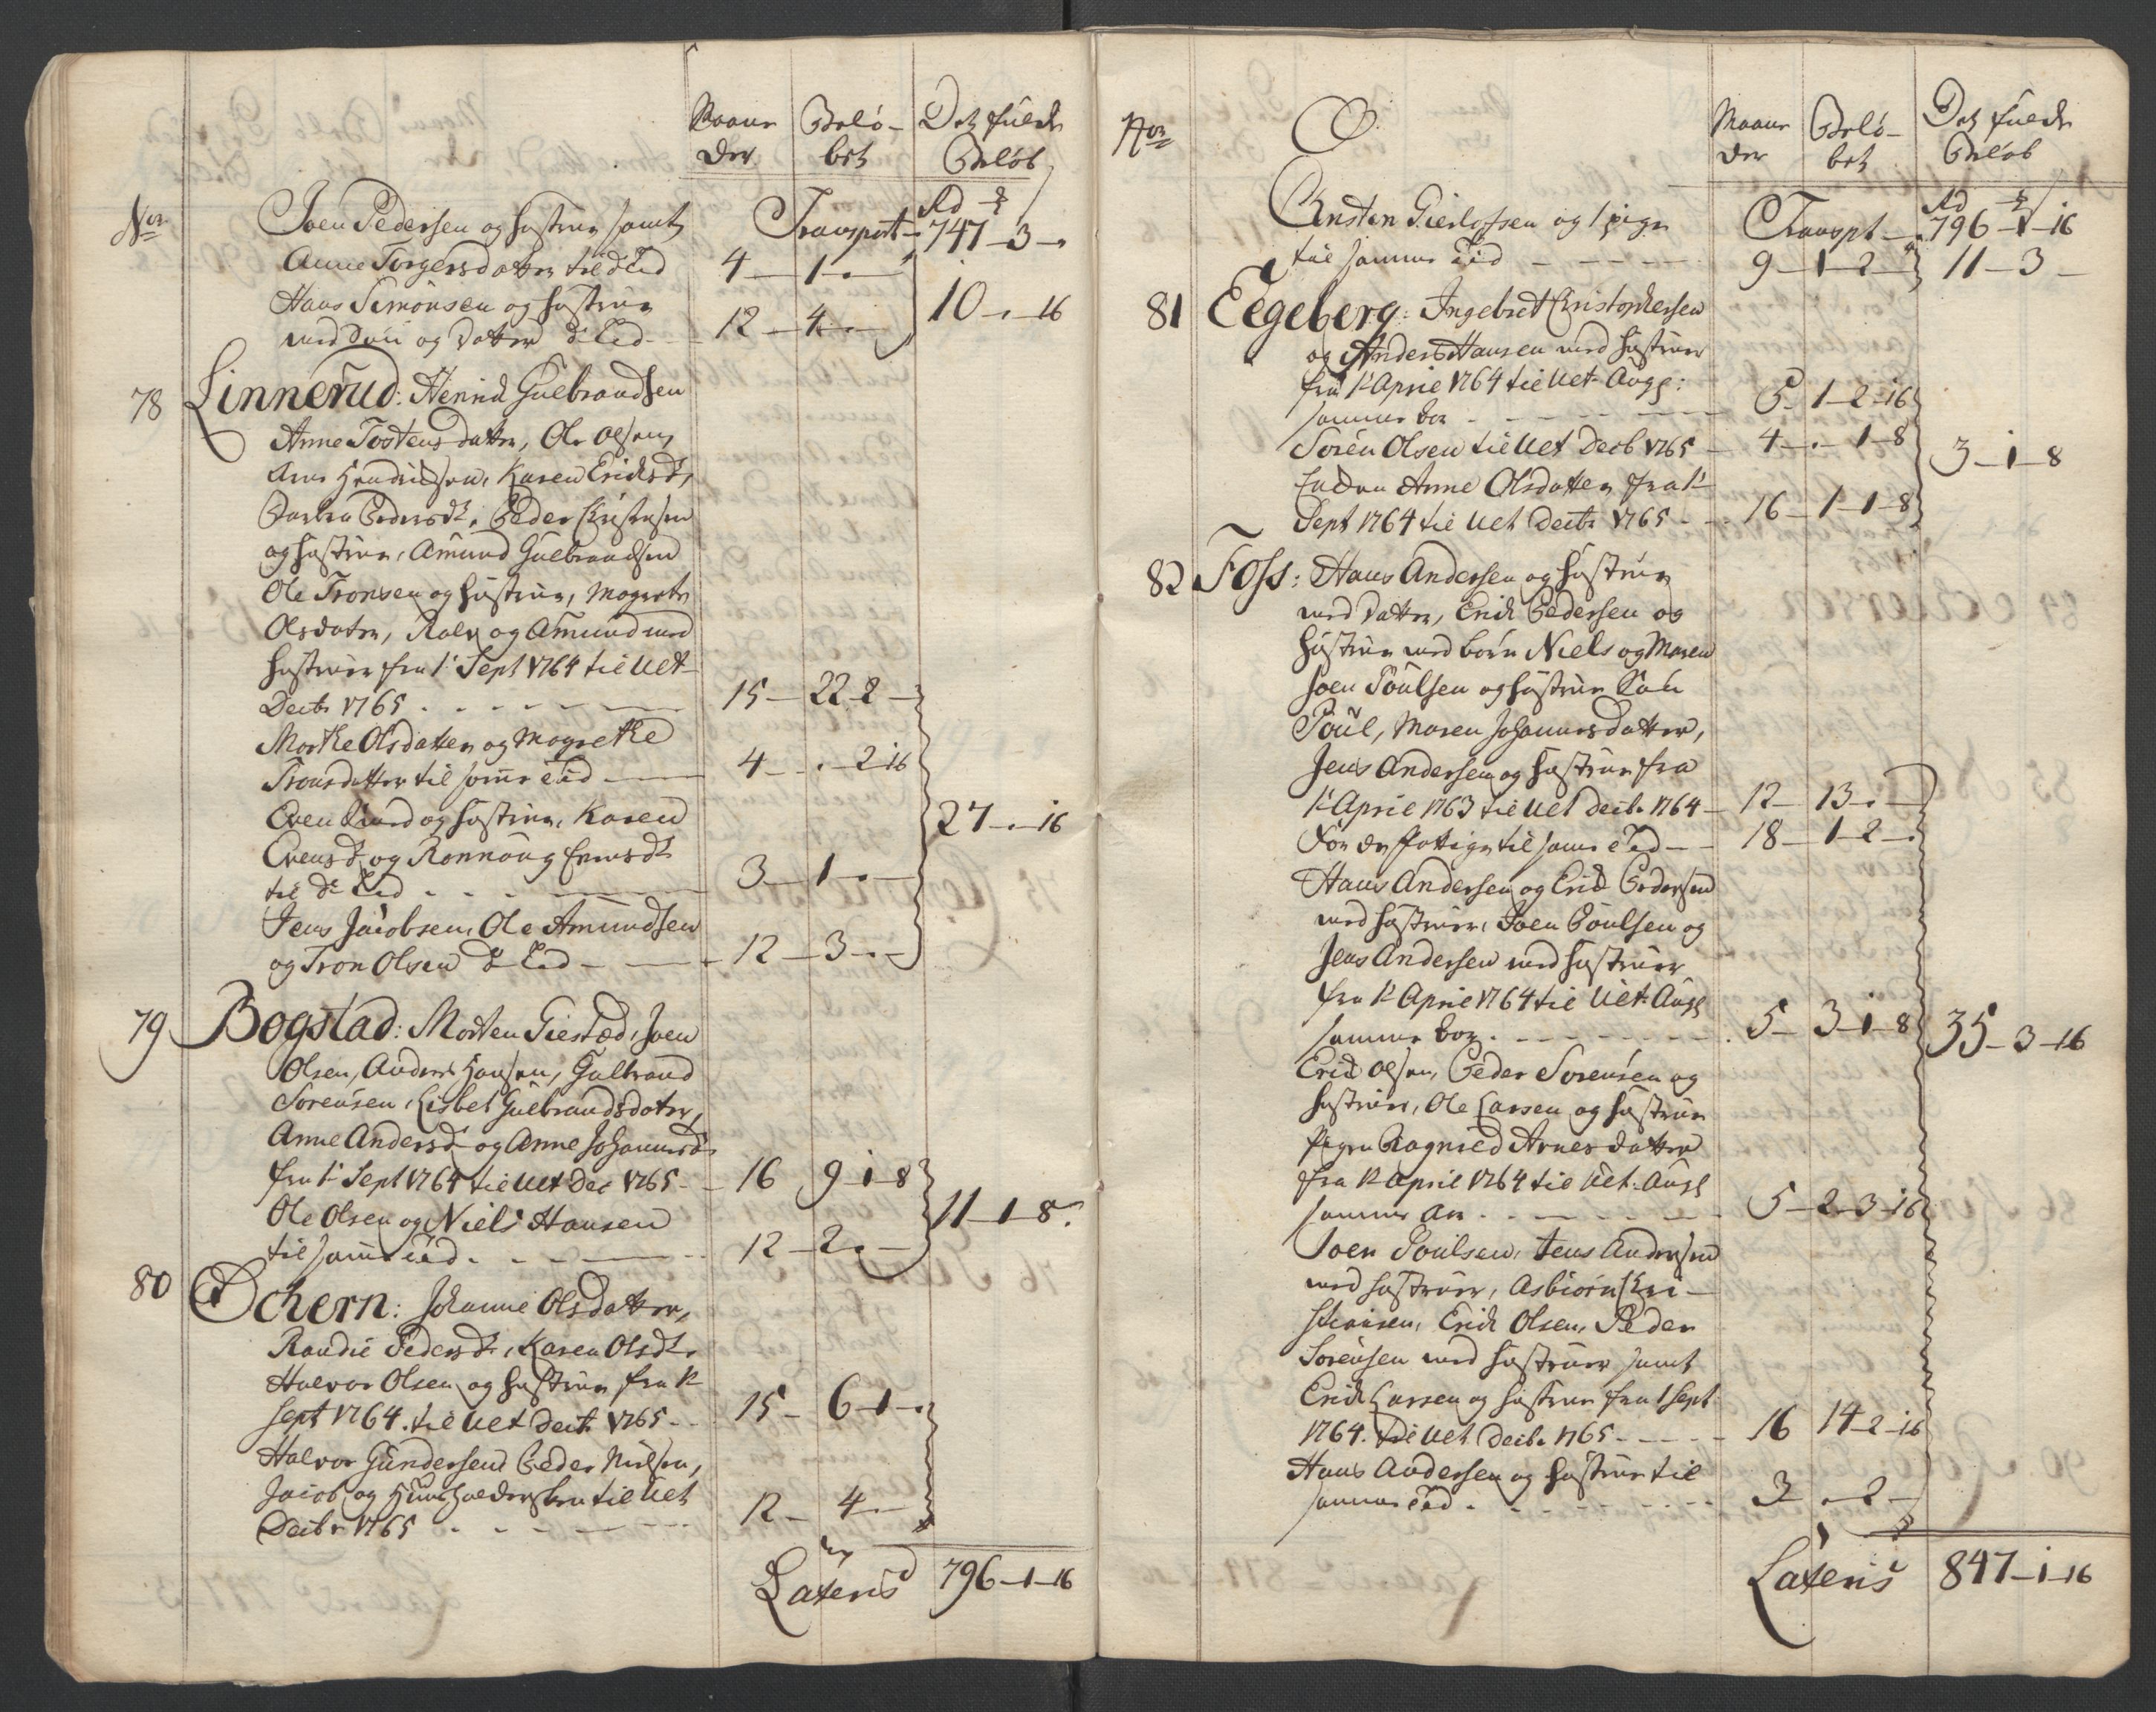 Maane Beløb- Det fulde
der bet Beløb
Rd
No Joen Pedersen og hustrue samt Transport 747-3-.
Anne Torgersdatter til d Tid 4-1-.
Hans Simonsen og hustrue 10-.-16
med Søn og Datter d Tid 12-4-.
78 Linnerud: Henrich Gulbrandsen
Anne Tostensdatter, Ole Olsen,
Hendrichsen, Karen Erichsd
Pedersd, Peder Christensen
og hustrue, Amund Gulbrandsen
Ole Tronsen og hustrue, Magrete
Olsdater, Rolv og Amund med
hustruer fra 1 Sept 1764 til Ult
Decbr 1765 15-22-2-
Marthe Olsdatter og Magrethe
Tronsdatter til samme tiid 4-.-2-16
Even og hustrue, Karen 27-.-16
Evensd og Ronnoug Evensdt
til d Tid 3-1-.
Jens Jacobsen, Ole Amundsen
og Tron Olsen d Tid 12-3-.-
79 Bogstad: Morten Giested, Joen
Olsen, Anders Hansen, Gulbrand
Sørensen, Lisbet Gulbrandsdater,
Anne Andersd og Anne Johannesd
fra 1 Sept 1764 til Ult Dec 1765 16 9-1-8
Ole Olsen og Niels Hansen 11-1-8.
til samme tiid 12-2.-
80 Ochern: Johanne Olsdatter,
Randie Pedersdt, Karen Olsdt
Halvor Olsen og hustrue fra 1
Sept 1764. til Ult Decbr 1765 15-6-1-.
Halvor Gundersen Peder Nielsen,
Jacob og til Ult
Decbr 1765 12-4-.
Lateris 796-1-16
No Maane Beløb- Det fulde
der bet Beløb
Rd
og 1 pige Transpt 796-1-16
til samme Tiid 9-1-2- 11-3-
81 Eegeberg: Ingebret Christophersen
og Anders Hansen med hustruer
fra 1 April 1764 til Ult Augs:
samme 5-1-2-16
Søren Olsen til Ult Decb 1765 4-.-1-8 3-1-8
Enken Anne Olsdatter fra 1
Sept 1764 til Ult Decbr 1765 16-1-1-8
82 Foss: Hans Andersen og hustrue
med Datter, Erich Pedersen og
hustrue med børn Niels og Maren
Joen Poulsen og hustrue Søn
Poul, Maren Johannesdatter,
Jens Andersen og hustrue fra
1 April 1763 til Ult Decbr 1764 12-13-.-
For de fattige til samme Tid 18-1-2-.
Hans Andersen og Erich Pedersen
med hustruer, Joen Poulsen og
Jens Andersen med hustruer
fra 1 April 1764 til Ult Augs
samme 5-3-1-8 35-3-16
Erich Olsen, Peder Sørensen og
hustruer, Ole Larsen og hustrue
Pigen Ragnild Arnesdatter
fra 1 April 1764 til Ult Augs
samme 5-2-3-16
Joen Poulsen, Jens Andersen
med hustruer, Asbiørn Chri-
stiansen, Erich Olsen, Peder
Sørensen med hustruer samt
Erich Larsen og hustrue fra 1 Sept
1764. til Ult Decbr 1765 16 14-2-16
Hans Andersen og hustrue til
samme Tiid 3-.-2-
Lateris 847-1-16